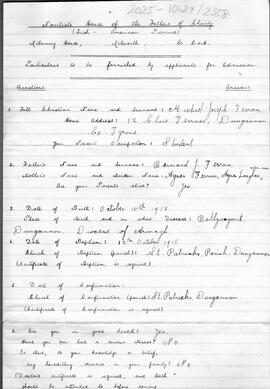 2025-10-29/2358
Novitiate House of the Fathers of Charity
(Irish - American Province)
Kilworth Co. Cork.
Particulars to be furnished by applicants for admission
Questions Answers
1. Full Christian Name and Surname: Michael Joseph Ferran
Home Address: 12 Terrace, Dungannon
Co Tyrone
Your Present Occupation: Student
2. Father's Name and Surname: Bernard J. Ferran
Mother's Name and Maiden Name: Agnes Ferran, Agnes
Are your Parents alive? Yes.
3. Date of Birth: October 10th 1915
Place of Birth and in what Diocese: Ballygawt,
Dungannon, Diocese of Armagh
4. Date of Baptism: October 1915
Church of Baptism (parish): St. Patricks, Parish: Dungannon
(Certificate of Baptism is required)
5. Date of Confirmation:
Church of Confirmation (parish): St Patricks, Dungannon
(Certificate of Confirmation is required)
6. Are you in good health? Yes.
Have you ever had a serious illness? No.
Is there, to your knowledge or belief,
any hereditary disease in your family? No.
(Doctor's certificate is required, and teeth
should be attended to before coming